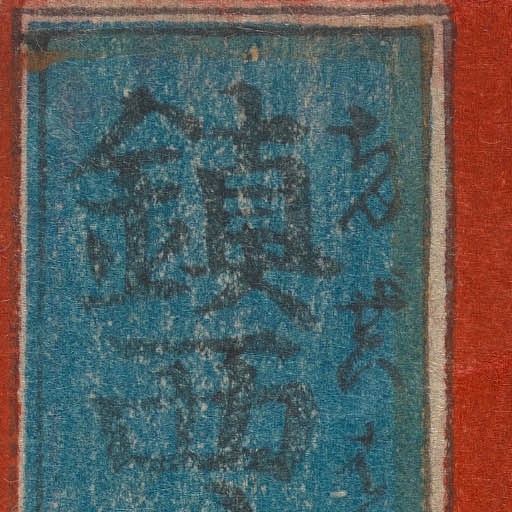 鎮西
ちんぜい